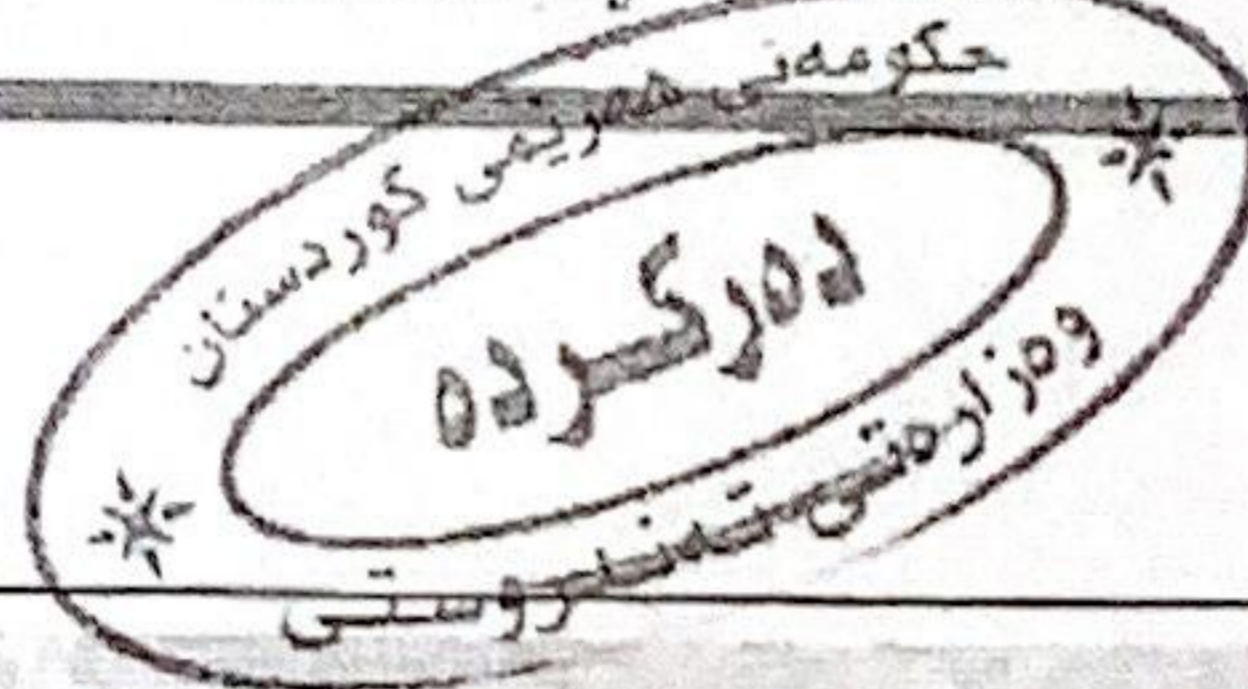 حکومەتی هەرێمی کوردستان
دەرکردە
وەزارەتی تەندروستی